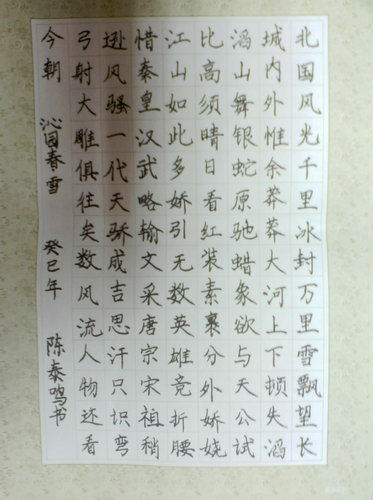 北国风光千里冰封万里雪飘望长
城内外惟余莽莽大河上下顿失滔
滔山舞银蛇原驰蜡象欲与天公试
比高须晴日看红装素裹分外娇娆
江山如此多娇引无数英雄竞折腰
惜秦皇汉武略输文采唐宗宋祖稍
逊风骚一代天骄成吉思汗只识弯
弓射大雕俱往矣数风流人物还看
今朝 沁园春雪 癸巳年 陈泰鸣书